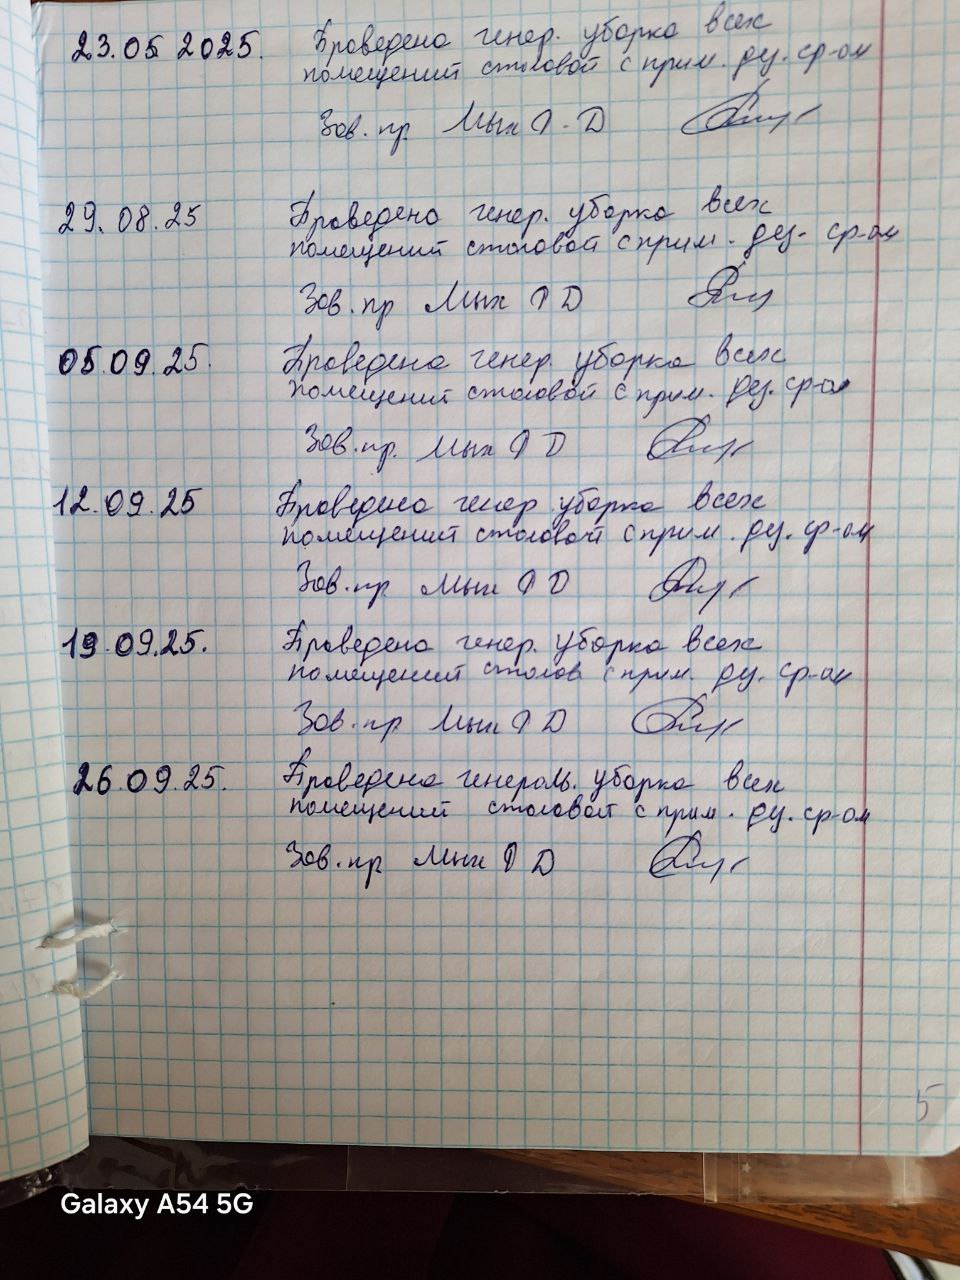 23.05 2025. Проведена генер. уборка всех
помещений столовой с прим. дез. ср-ом
Зав. пр. Мых Ф. Д
29.08.25 Проведена генер. уборка всех
помещений столовой с прим. дез. ср-ом
Зав. пр Мых Ф Д
05.09.25. Проведена генер. уборка всех
помещений столовой с прим. дез. ср-ом
Зав. пр. Мых Ф Д
12.09.25 Проведена генер уборка всех
помещений столовой с прим. дез. ср-ом
Зав. пр Мых Ф Д
19.09.25. Проведена генер. уборка всех
помещений столов с прим. дез. ср-ом
Зав. пр Мых Ф Д
26.09.25. Проведена генераль. уборка всех
помещений столовой с прим. дез. ср-ом
Зав. пр Мых Ф Д
5
Galaxy A54 5G